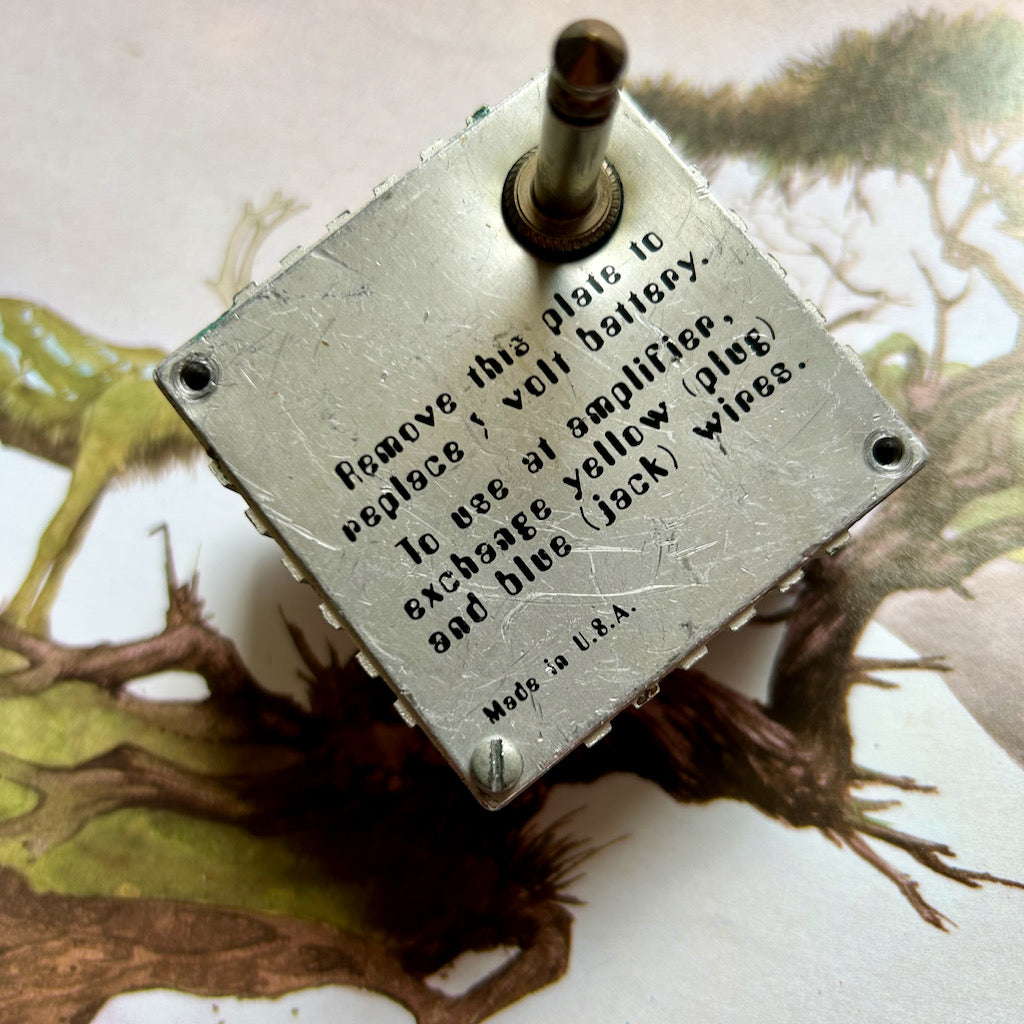 Remove this plate to
replace 9 volt battery.
To use at amplifier,
exchange yellow (plug)
and blue (jack) wires.
Made in U.S.A.